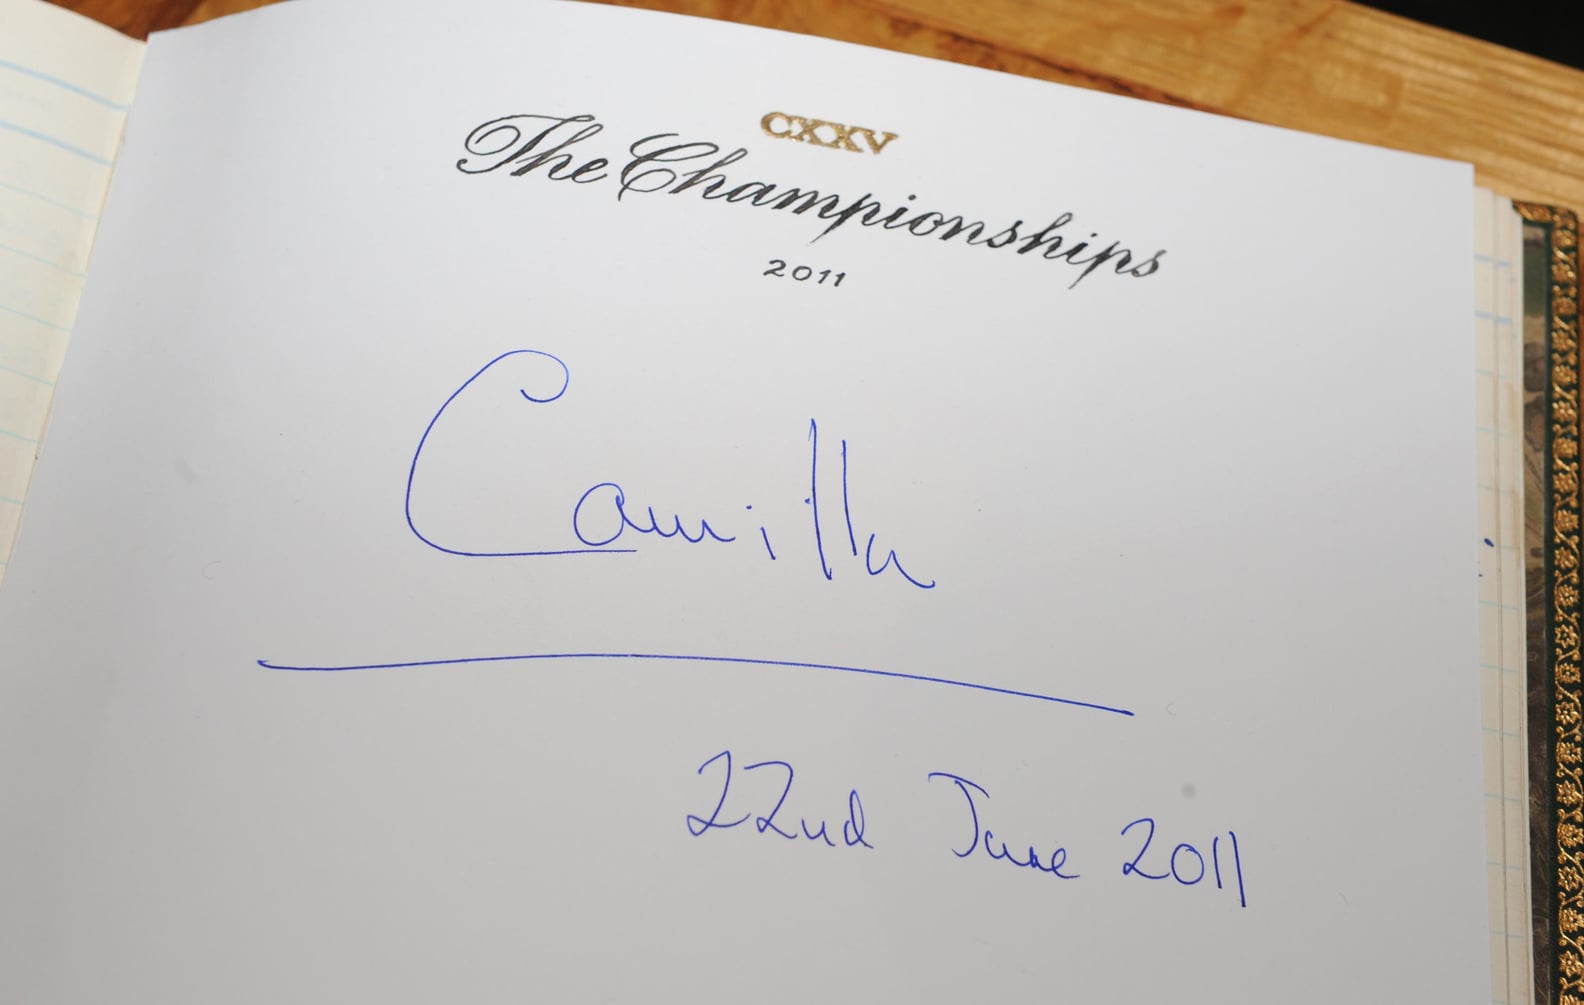 CXXV
The Championships
2011
Camilla
22nd June 2011